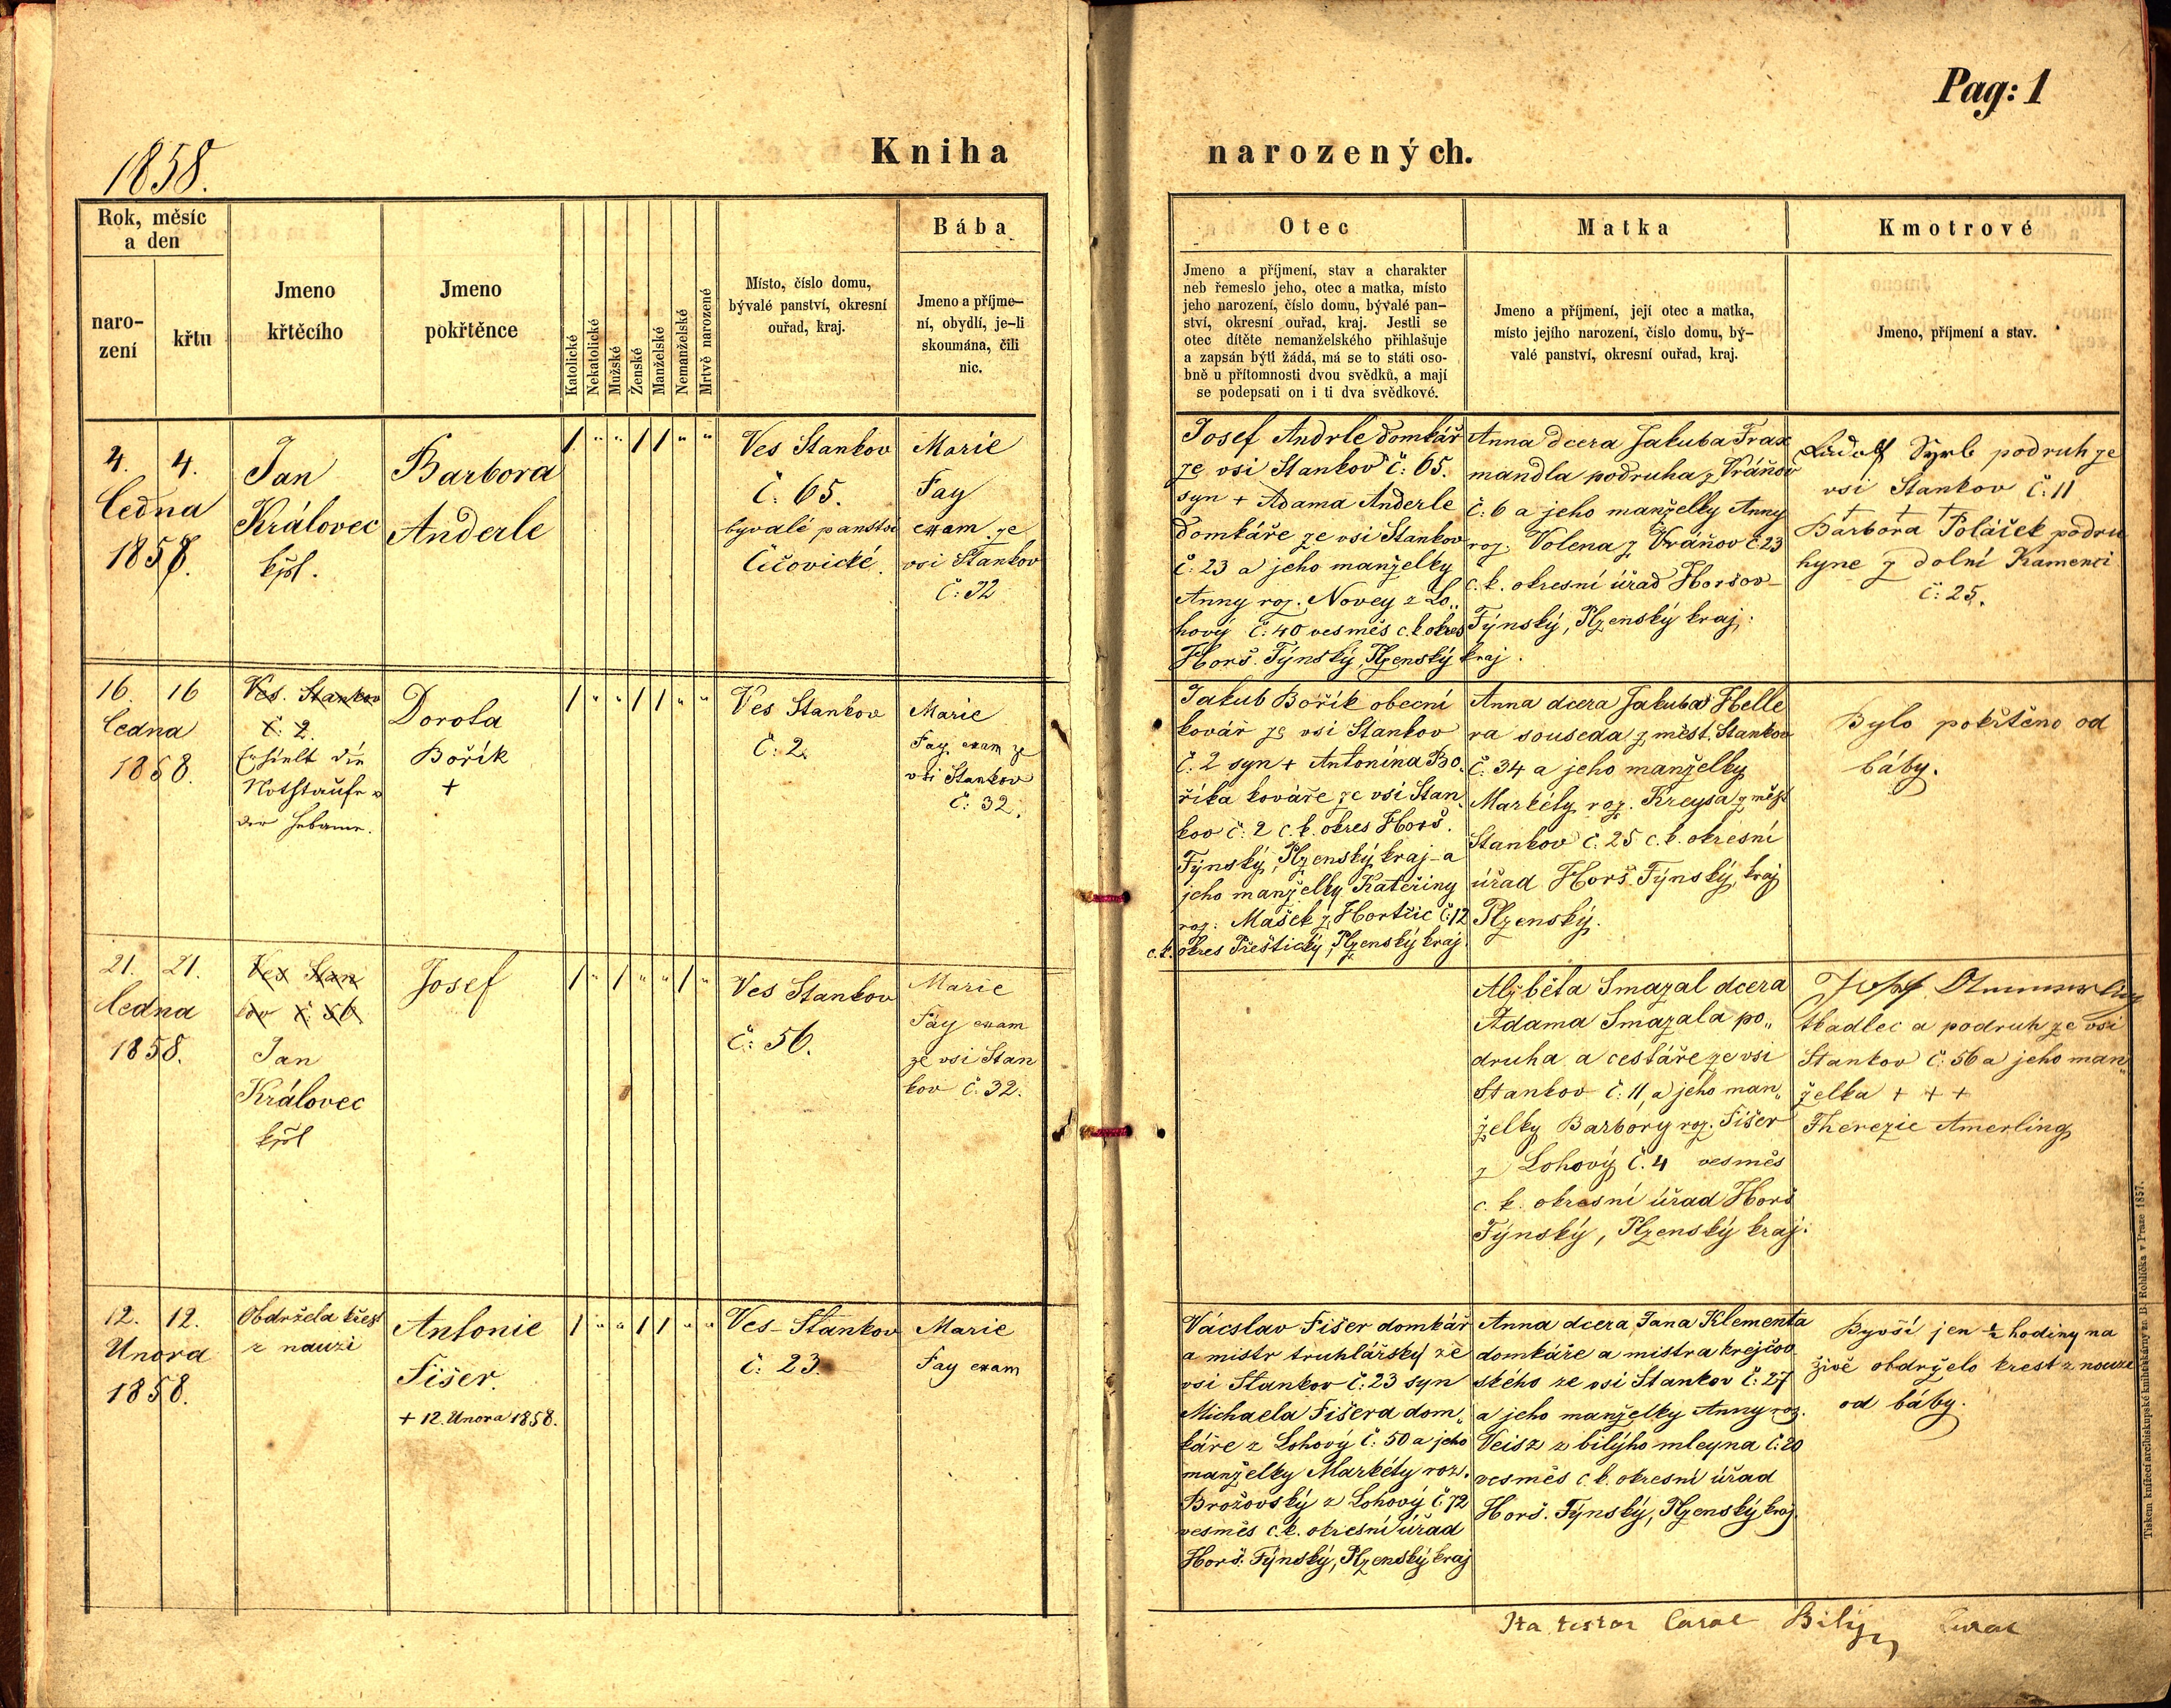 Pag: 1
1858.
Kniha narozených.
Rok, měsíc
a den
naro-
zení
křtu
Jmeno
křtěcího
Jmeno
pokřtěnce
Katolické
Nekatolické
Mužské
Ženské
Manželské
Nemanželské
Mrtvě narozené
Místo, číslo domu,
bývalé panství, okresní
ouřad, kraj.
Bába
Jmeno a příjme-
ní, obydlí, je-li
skoumána, čili
nic.
Otec
Jmeno a příjmení, stav a charakter
neb řemeslo jeho, otec a matka, místo
jeho narození, číslo domu, bývalé pan-
ství, okresní ouřad, kraj. Jestli se
otec dítěte nemanželského přihlašuje
a zapsán býti žádá, má se to státi oso-
bně u přítomnosti dvou svědků, a mají
se podepsati on i ti dva svědkové.
Matka
Jmeno a příjmení, její otec a matka,
místo jejího narození, číslo domu, bý-
valé panství, okresní ouřad, kraj.
Kmotrové
Jmeno, příjmení a stav.
4. 4.
ledna
1858.
Jan
Královec
kpl.
Barbora
Anderle
/ " " / / " "
Ves Stankov
č: 65.
byvalé panství
Čičovické.
Marie
Fay
exam. ze
vsi Stankov
č: 32
Josef Andrle domkář
ze vsi Stankov č: 65.
syn + Adama Anderle
domkáře ze vsi Stankov
č: 23 a jeho manželky
Anny roz. Novey z Lo„
hový č: 40 vesměs c.k. okres
Horš. Týnský, Plzenský kraj.
Anna dcera Jakuba Frax
mandla podruha z Vráňov
č: 6 a jeho manželky Anny
roz. Volena z Vráňov č: 23
c.k. okresní úřad Horšov-
Týnský, Plzenský kraj:
Rudolf podruh ze
vsi Stankov č: 11
+ + +
Barbora Poláček podru
hyne z dolní Kamenci
č: 25.
16. 16
ledna
1858.
Ves. Stankov
č. 2.
Erhielt die
Nothtaufe v
der Hebame.
Dorota
Bořík
+
/ " " / / " "
Ves Stankov
č: 2.
Marie
Fay exam ze
vsi Stankov
č: 32.
Jakub Bořík obecní
kovář ze vsi Stankov
č: 2 syn + Antonína Bo„
říka kováře ze vsi Stan„
kov č: 2 c.k. okres Horš.
Týnský, Plzenský kraj - a
jeho manželky Kateřiny
roz: Mašek z Hortčic č: 12
c.k. okres Přeštický, Plzenský kraj.
Anna dcera Jakuba Helle
ra souseda z měst. Stankov
č: 34 a jeho manželky
Markéty roz. Kreysa z měst
Stankov č: 25 c.k. okresní
úřad Horš. Týnský, kraj
Plzenský.
Bylo pokřtěno od
báby.
21. 21.
ledna
1858.
Ves Stan
kov č. 56
Jan
Královec
kpl
Josef
/ " / " " / "
Ves Stankov
č: 56.
Marie
Fay exam
ze vsi Stan
kov č: 32.
Alžběta Smazal dcera
Adama Smazala po„
druha a cestáře ze vsi
Stankov č: 11, a jeho man„
želky Barbory roz. Fišer
z Lohový č. 4 vesměs
c. k. okresní úřad Horš
Týnský, Plzenský kraj:
Josef
tkadlec a podruh ze vsi
Stankov č: 56 a jeho man„
želka + + +
Therezie Amerling
12. 12.
Unora
1858.
Obdržela křest
z nauzi
Antonie
Fišer.
+ 12. Unora 1858.
/ " " / / " "
Ves - Stankov
č: 23.
Marie
Fay exam
Václslav Fišer domkář
a mistr truhlářský ze
vsi Stankov č: 23 syn
Michaela Fišera dom„
káře z Lohový č: 50 a jeho
manželky Markéty roz.
Brožovský z Lohový č: 72
vesměs c.k. okresní úřad
Horš. Týnský, Plzenský kraj
Anna dcera Jana Klementa
domkáře a mistra krejčov
ského ze vsi Stankov č: 27
a jeho manželky Anny roz.
Veisz z bilýho mleyna č: 20
vesměs c.k. okresní úřad
Horš. Týnský, Plzenský kraj.
Byvší jen ½ hodiny na
živě obdrželo krest z nouze
od báby.
Ita testor Carol Bilý
Tiskem knížecí arcibiskupské knihtiskárny za B. Rohlíčka v Praze 1857.